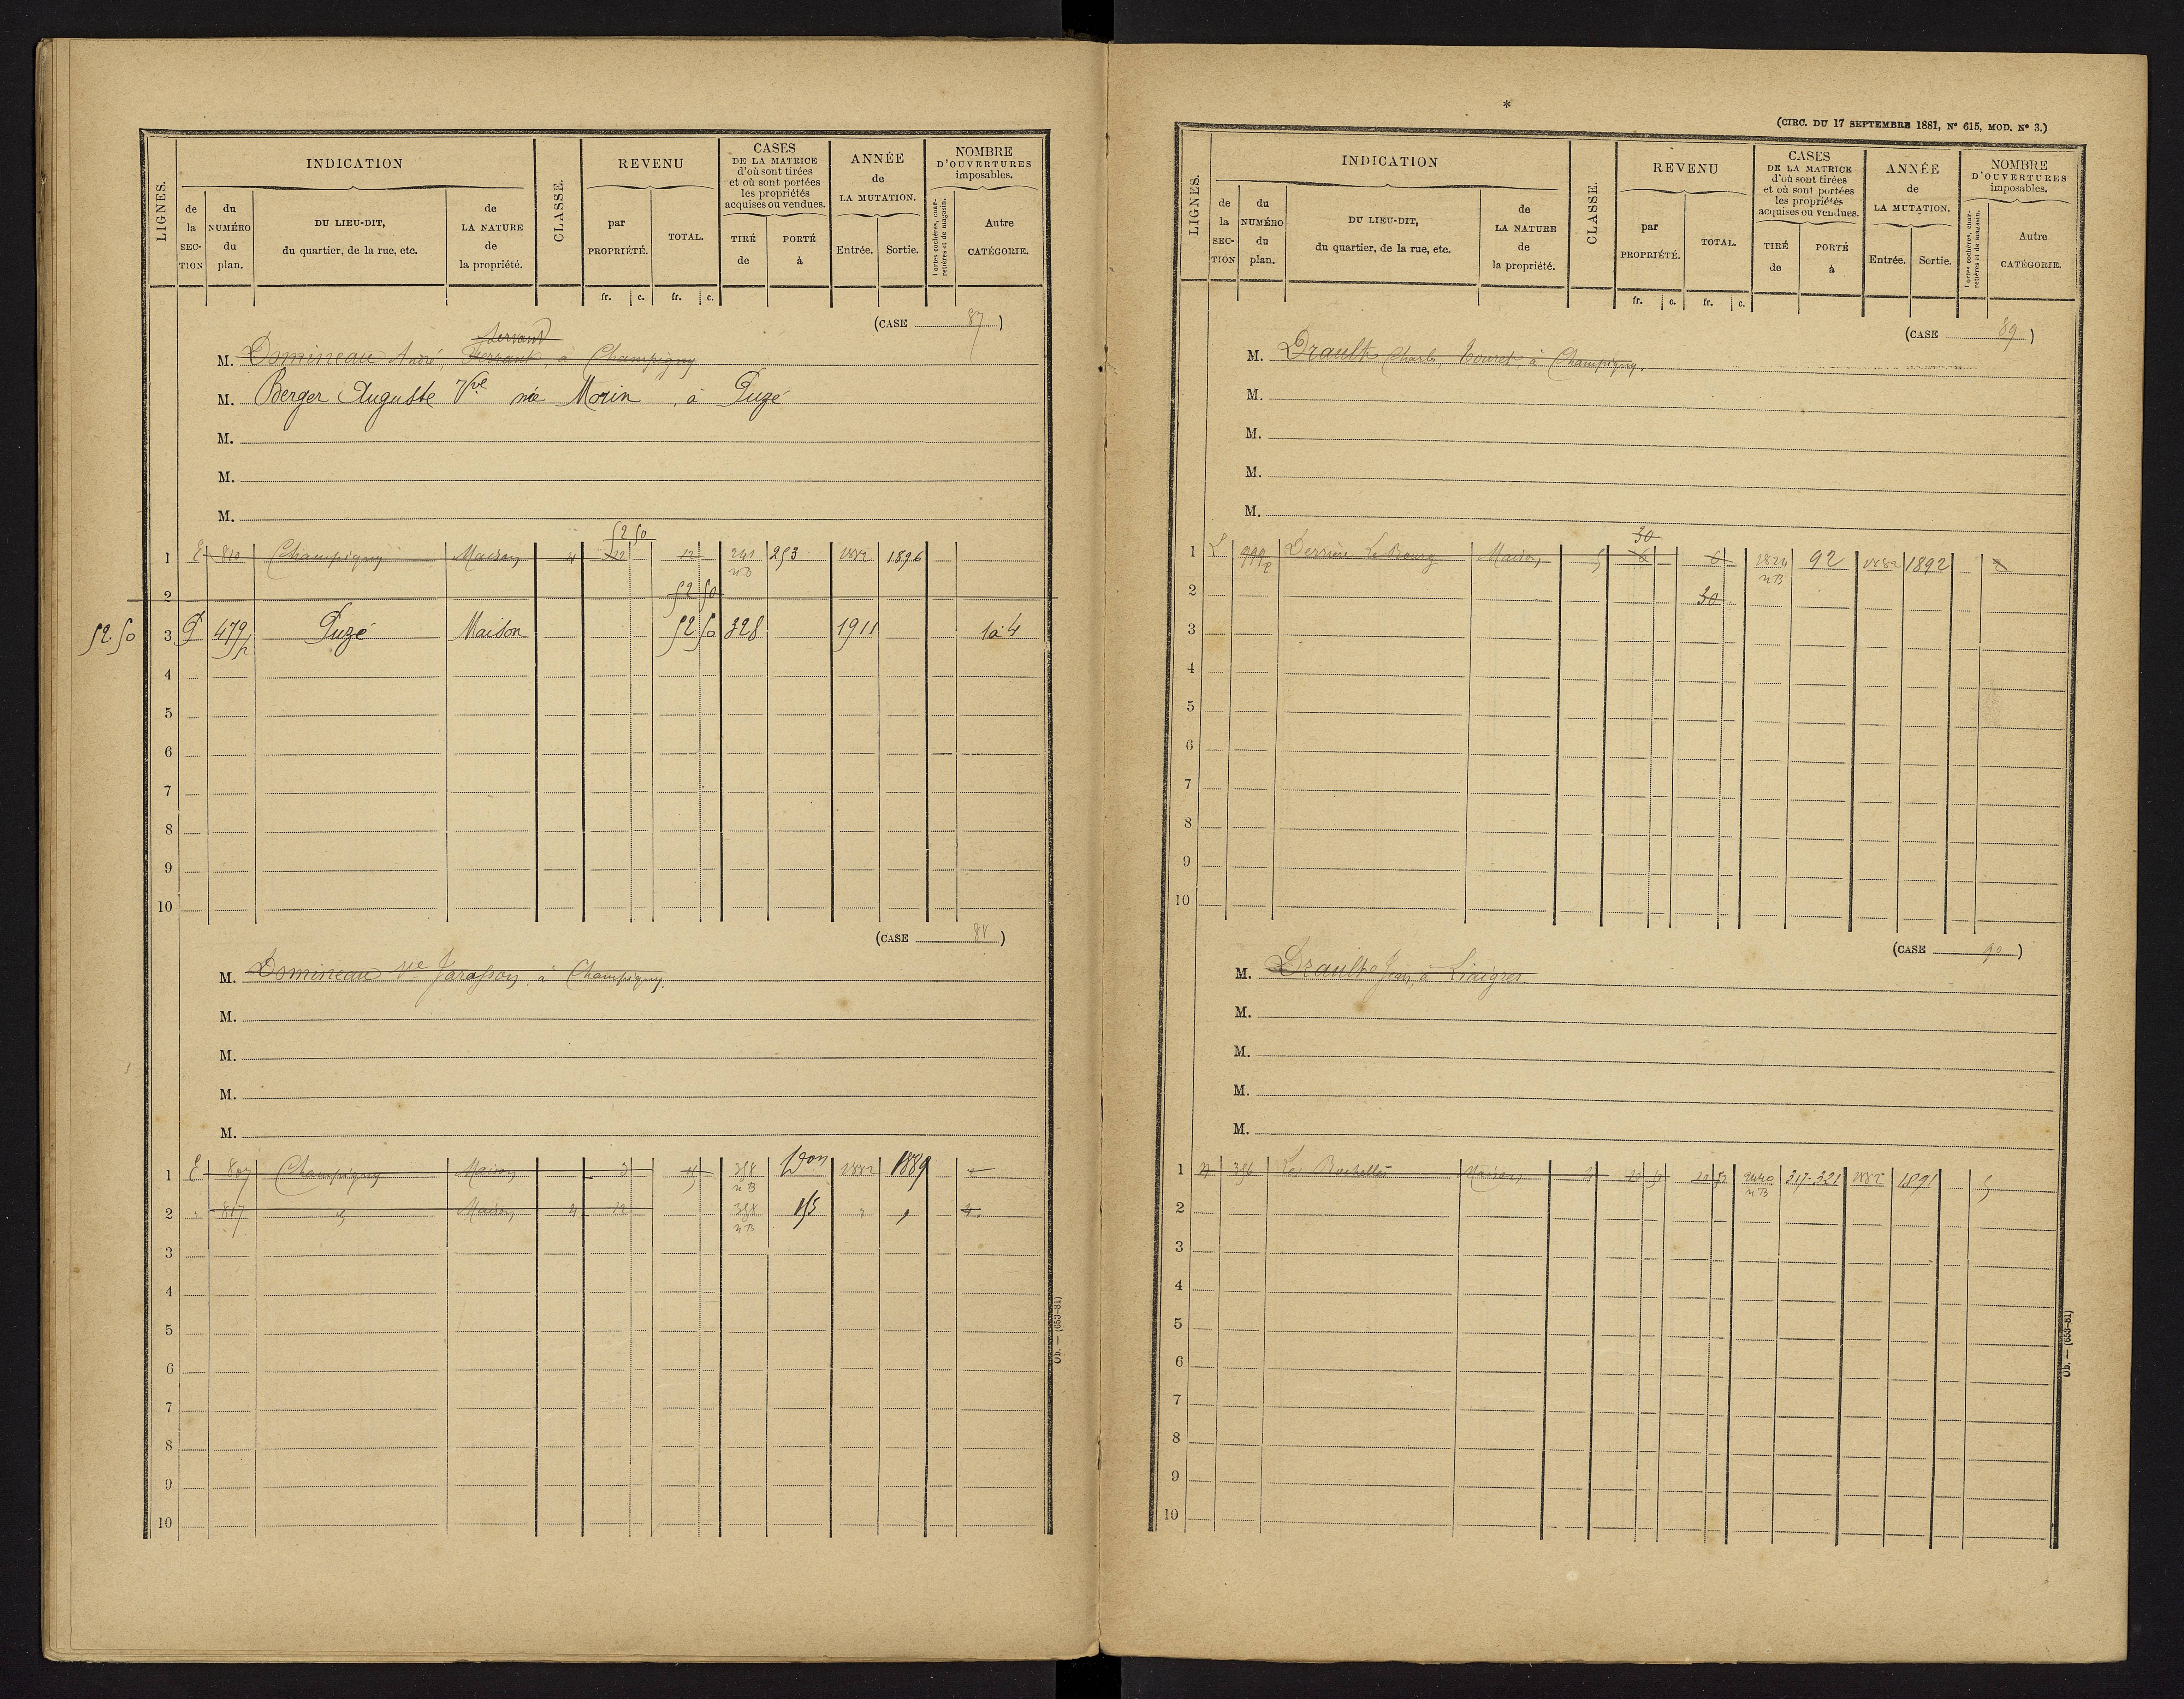 LIGNES.
INDICATION
de la SECTION
du NUMÉRO du plan.
DU LIEU-DIT, du quartier, de la rue, etc.
de LA NATURE de la propriété.
CLASSE.
REVENU
par PROPRIÉTÉ.
TOTAL.
CASES DE LA MATRICE d'où sont tirées et où sont portées les propriétés acquises ou vendues.
TIRÉ de
PORTÉ à
ANNÉE de LA MUTATION.
Entrée. Sortie.
NOMBRE D'OUVERTURES imposables.
Portes cochères, charretières et de magasin.
Autre CATÉGORIE.
fr. c. fr. c.
(CASE 87)
Servant
M. Domineau André, à Champigny
M. Berger Auguste Vve née Morin, à Puzé
M.
M.
M.
52 50
1 E 810 Champigny Maison 4 12 12 241 253 1882 1896
nB
2 52 50
52.50 3 P 479p Puzé Maison 52 50 328 1911 1à4
4
5
6
7
8
9
10
(CASE 88)
M. Domineau Ve Jarasson, à Champigny.
M.
M.
M.
M.
1 E 807 Champigny Maison 5 358 Don 1882 1889
nB
2 " 817 Maison 4 12 358 155 " " 4
nB
3
4
5
6
7
8
9
10
Ob. — (653-81)
*
(CIRC. DU 17 SEPTEMBRE 1881, N° 615, MOD. N° 3.)
LIGNES.
INDICATION
de la SECTION
du NUMÉRO du plan.
DU LIEU-DIT, du quartier, de la rue, etc.
de LA NATURE de la propriété.
CLASSE.
REVENU
par PROPRIÉTÉ.
TOTAL.
CASES DE LA MATRICE d'où sont tirées et où sont portées les propriétés acquises ou vendues.
TIRÉ de
PORTÉ à
ANNÉE de LA MUTATION.
Entrée. Sortie.
NOMBRE D'OUVERTURES imposables.
Portes cochères, charretières et de magasin.
Autre CATÉGORIE.
fr. c. fr. c.
(CASE 89)
M. Drault Charles, Touret, à Champigny.
M.
M.
M.
M.
30
1 L 999p Derrière Le Bourg Maison 5 6 6 1824 92 1882 1892 2
nB
2 30
3
4
5
6
7
8
9
10
(CASE 90)
M. Drault Jean, à Liaigres.
M.
M.
M.
M.
1 396 Les Maison 4 2440 317-321 1882 1891 5
nB
2
3
4
5
6
7
8
9
10
Ob. — (653-81)